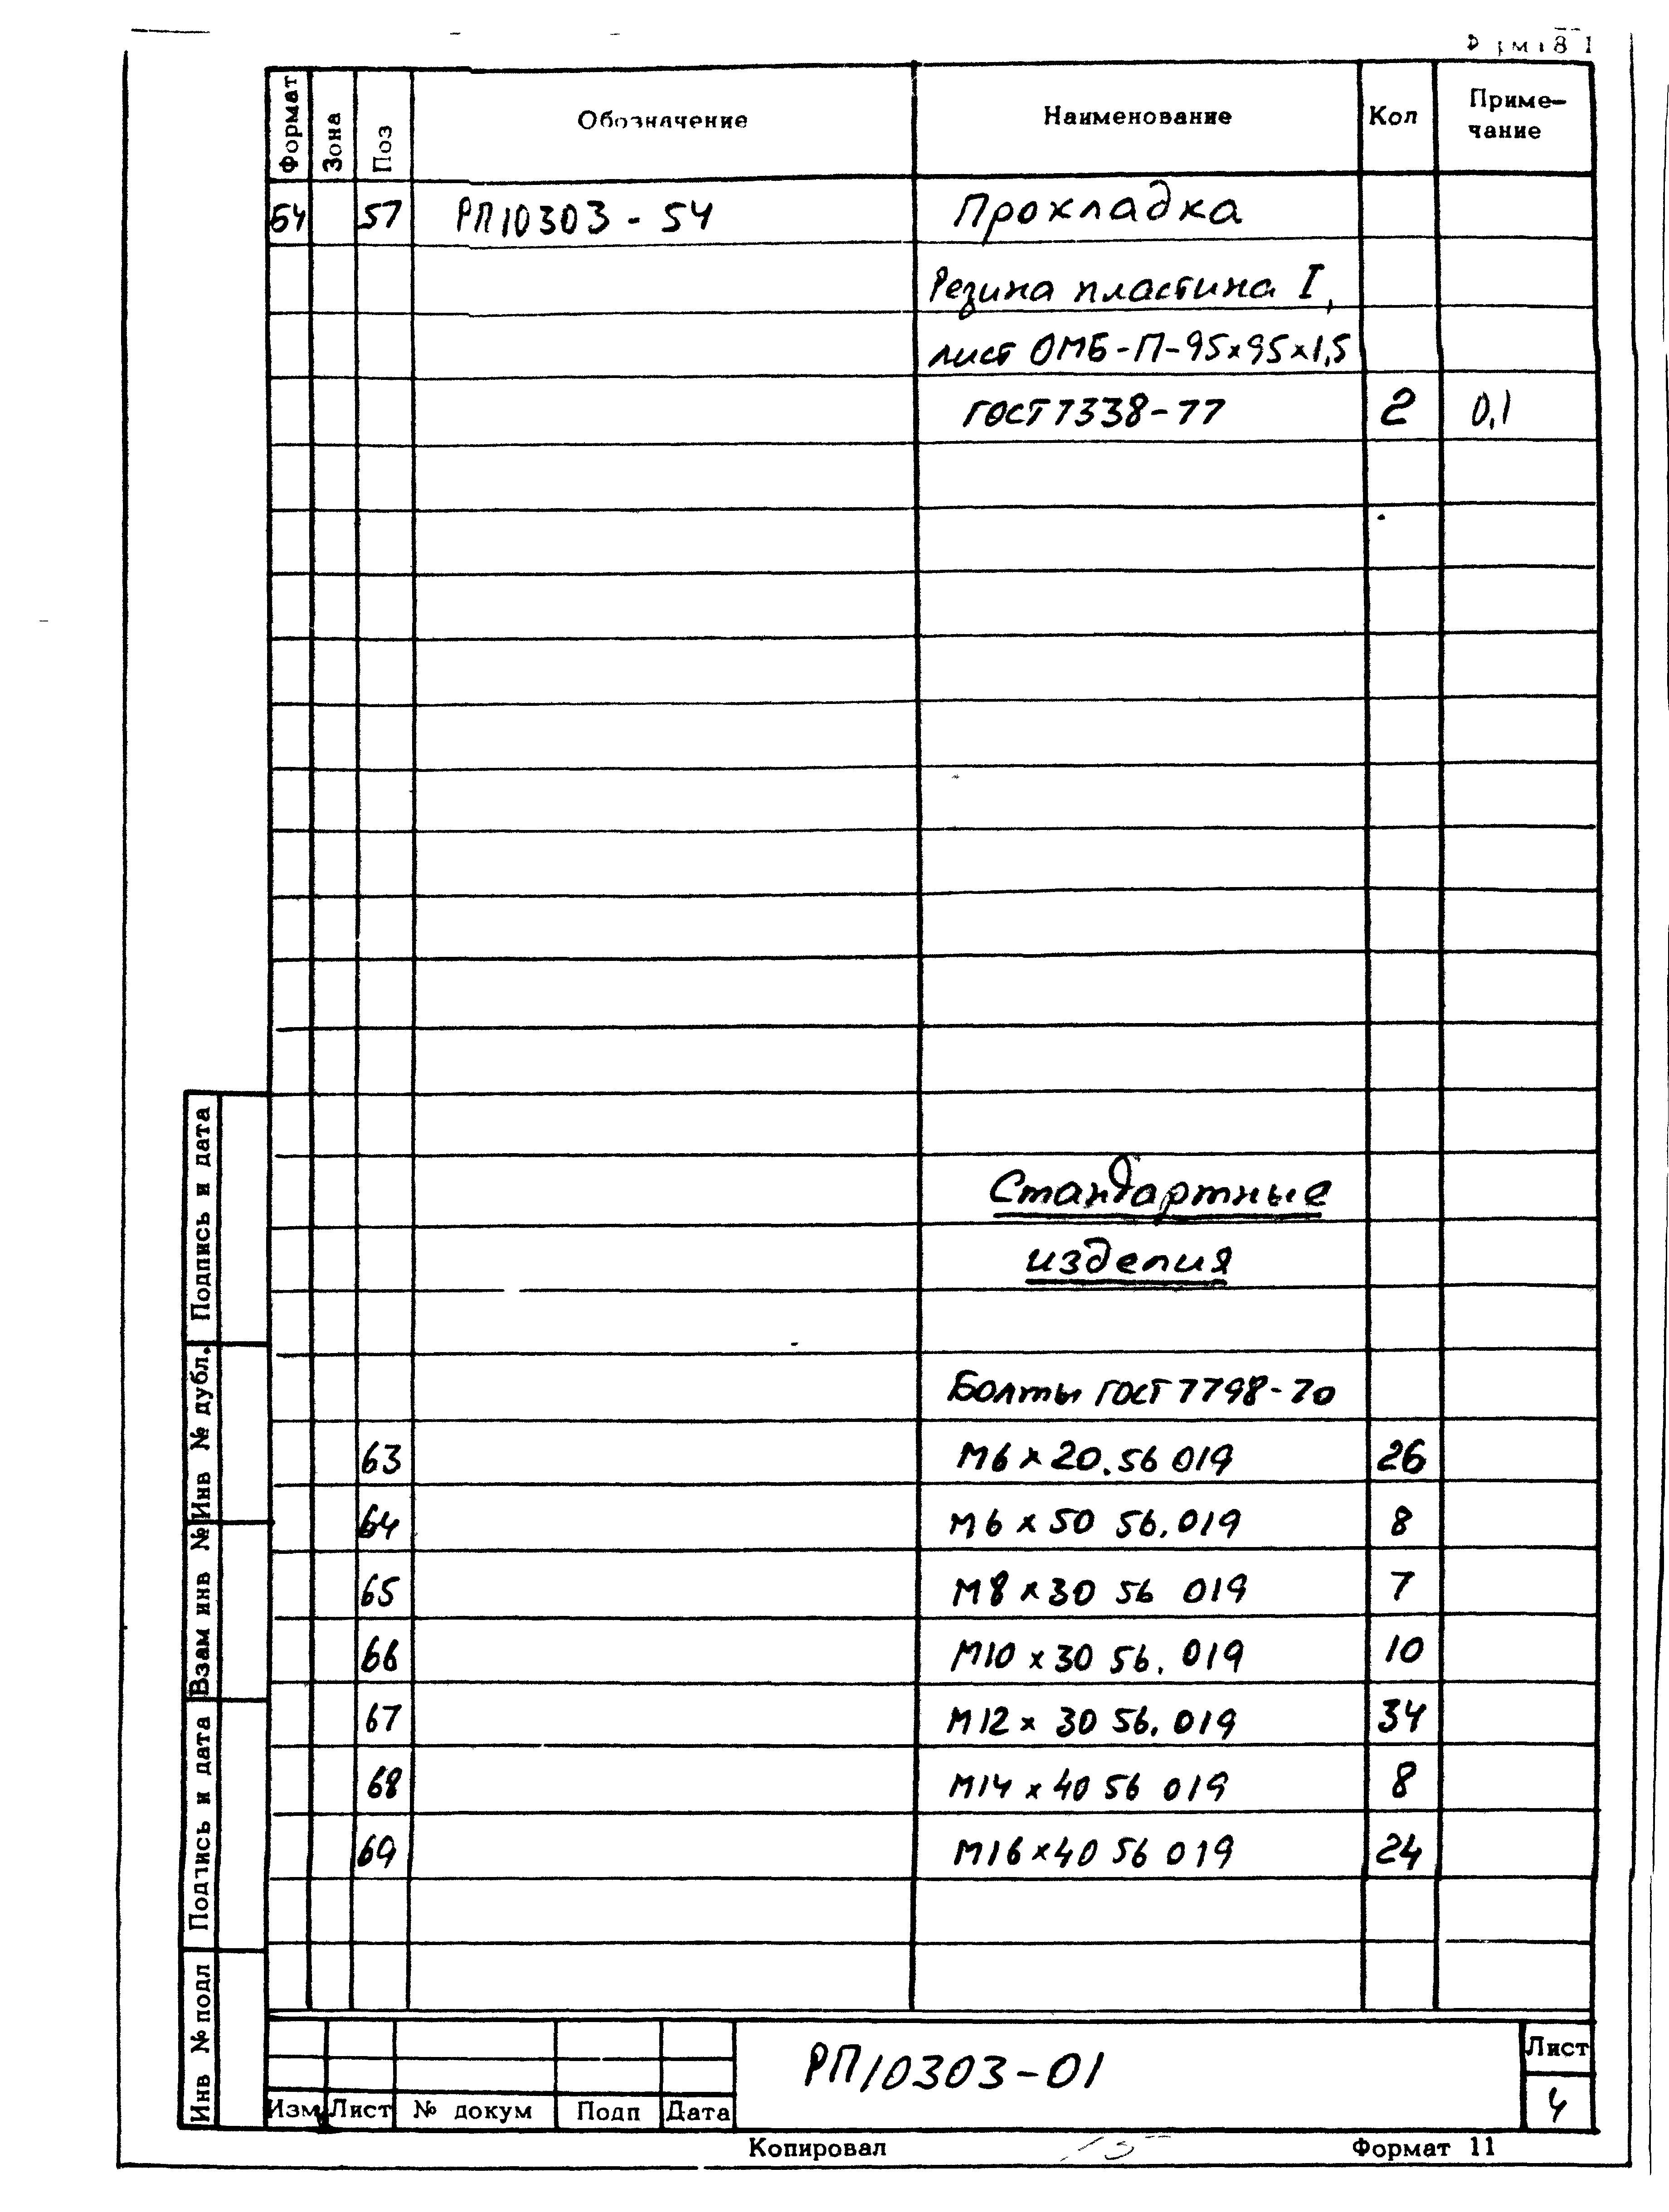 Формат Зона Поз Обозначение Наименование Кол Приме-
чание
БЧ 57 РП10303-54 Прокладка
Резина пластина I,
лист ОМБ-П-95х95х1,5
ГОСТ 7338-77 2 0,1
Стандартные
изделия
Болты ГОСТ 7798-70
63 М6х20.56 019 26
64 М6х50 56.019 8
65 М8х30 56 019 7
66 М10х30 56.019 10
67 М12х30 56.019 34
68 М14х40 56 019 8
69 М16х40 56 019 24
Подпись и дата
Инв № дубл.
Взам инв №
Подпись и дата
Инв № подл
РП10303-01
Лист
4
Изм Лист № докум Подп Дата
Копировал Формат 11